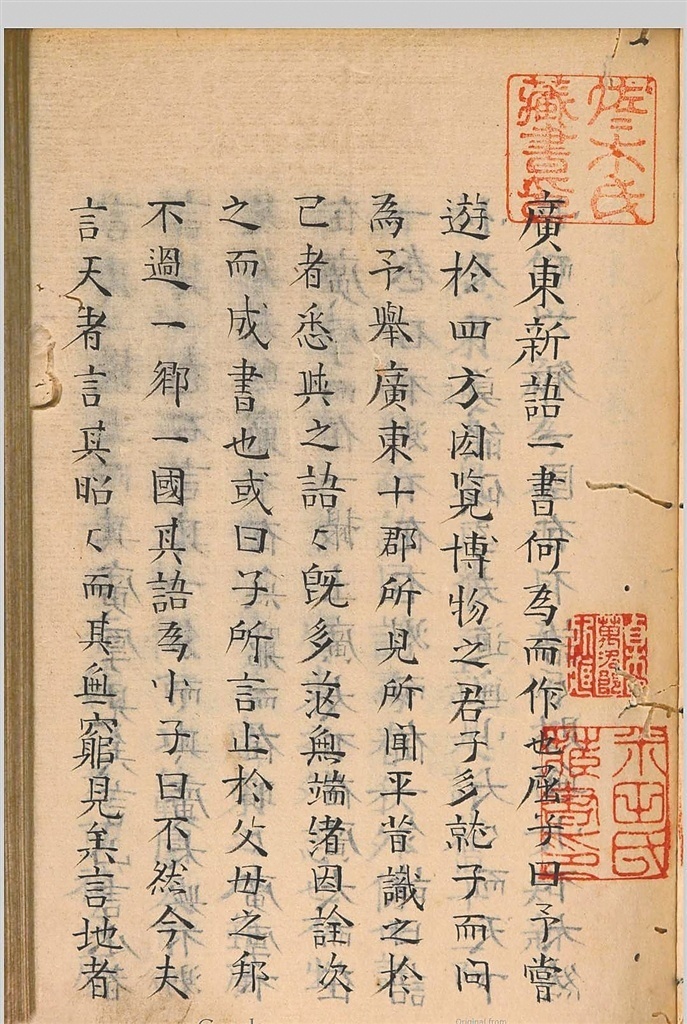 廣東新語一書何為而作也屈曰予嘗
遊於四方因覧博物之君子多就子而問
為予舉廣東十郡所見所聞平昔識之於
己者悉與之語〻既多茫無端緒因詮次
之而成書也或曰子所言止於父母之邦
不過一鄉一國其語為小子曰不然今夫
言天者言其昭〻而其無窮見矣言地者
佐々木氏
藏書印
米田氏
藏書印
Original from